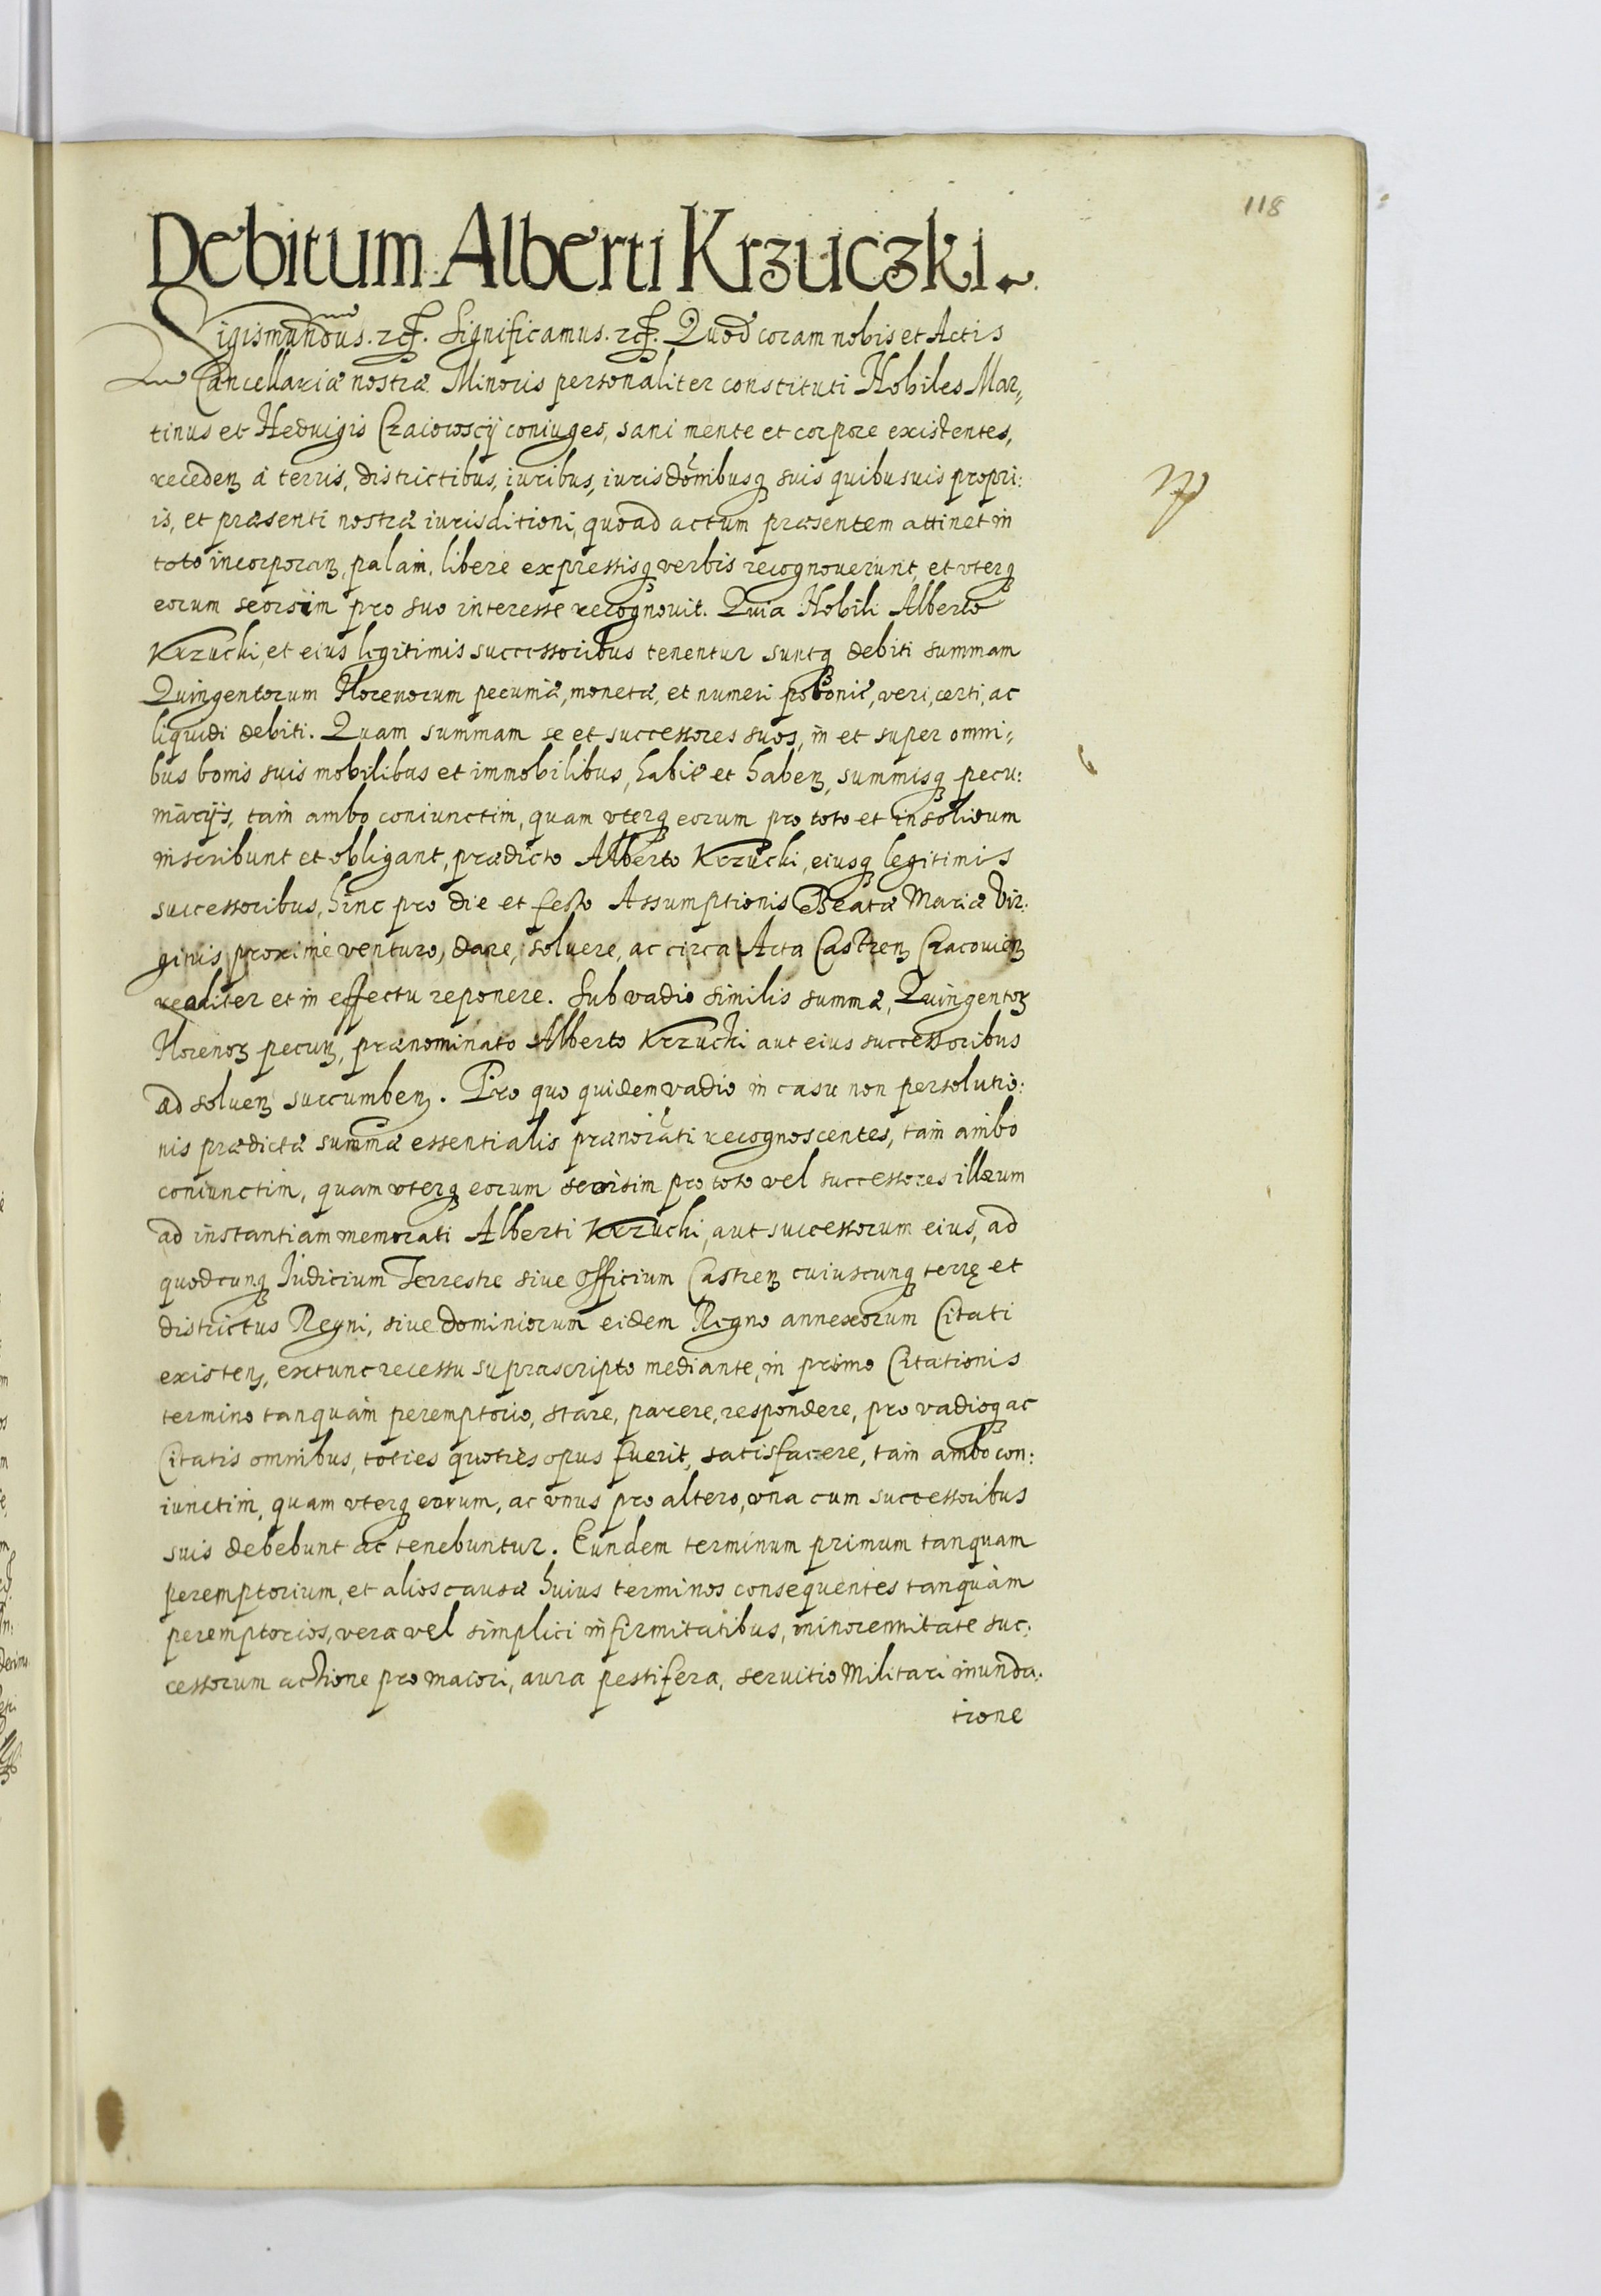 118
Debitum Alberti Krzuczki.
Sigismundus. etc. Significamus. etc. Quod coram nobis et Actis
Cancellariæ nostræ Minoris personaliter constituti Nobiles Mar„
tinus et Hedvigis Czaiowscÿ coniuges, sani mente et corpore existentes,
recedeñ à terris, districtibus, iuribus, iurisdōnibusq suis quibusuis propri:
is, et præsenti nostræ iurisditioni, quoad actum præsentem attinet in
toto incorporañ, palam, libere expressisq verbis recognouerunt, et vterq
eorum seorsim pro suo interesse recognouit. Quia Nobili Alberto
Krzucki, et eius legitimis successoribus tenentur suntq debiti summam
Quingentorum Florenorum pecuniæ, monetæ, et numeri poloniē, veri, certi, ac
liquidi debiti. Quam summam se et successores suos, in et super omni„
bus bonis suis mobilibus et immobilibus, habiē et habeñ, summisq pecu:
niarÿs, tam ambo coniunctim, quam vterq eorum pro toto et insolidum
inscribunt et obligant, prædicto Alberto Krzucki, eiusq legitimis
successoribus, hinc pro die et festo Assumptionis Beatæ Mariæ Vir:
ginis proximè venturo, dare, soluere, ac circa Acta Castreñ Cracouieñ
realiter et in effectu reponere. Sub vadio similis summæ, Quingentoꝝ
Florenoꝝ pecuñ, prænominato Alberto Krzucki aut eius successoribus
ad solueñ succumbeñ. Pro quo quidem vadio in casu non persolutio:
nis prædictæ summæ essentialis prænoiāti recognoscentes, tam ambo
coniunctim, quam vterq eorum seorsim pro toto vel successores illorum
ad instantiam memorati Alberti Krzucki, aut successorum eius, ad
quodcunq Iudicium Terrestre siue Officium Castreñ cuiuscunq terrę et
districtus Regni, siue dominiorum eidem Regno annexorum Citati
existeñ, extunc recessu suprascripto mediante, in primo Citationis
termino tanquam peremptorio, stare, parere, respondere, pro vadioq ac
Citatis omnibus, toties quoties opus fuerit, satisfacere, tam ambo con:
iunctim, quam vterq eorum, ac vnus pro altero, vna cum successoribus
suis debebunt ac tenebuntur. Eundem terminum primum tanquam
peremptorium, et alios causæ huius terminos consequentes tanquàm
peremptorios, vera vel simplici infirmitatibus, minorennitate suc:
cessorum actione pro maiori, aura pestifera, seruitio Militari inunda:
tione